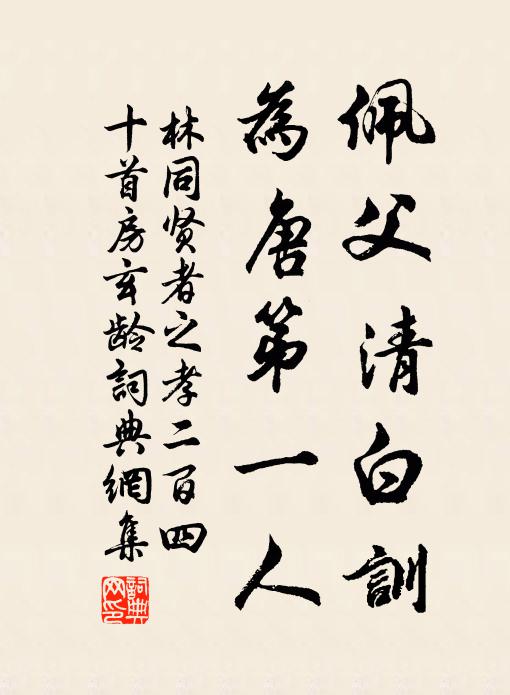 佩父清白訓
為唐第一人
林同贤者之孝二百四
十首房玄龄詞典網集
詞典網印